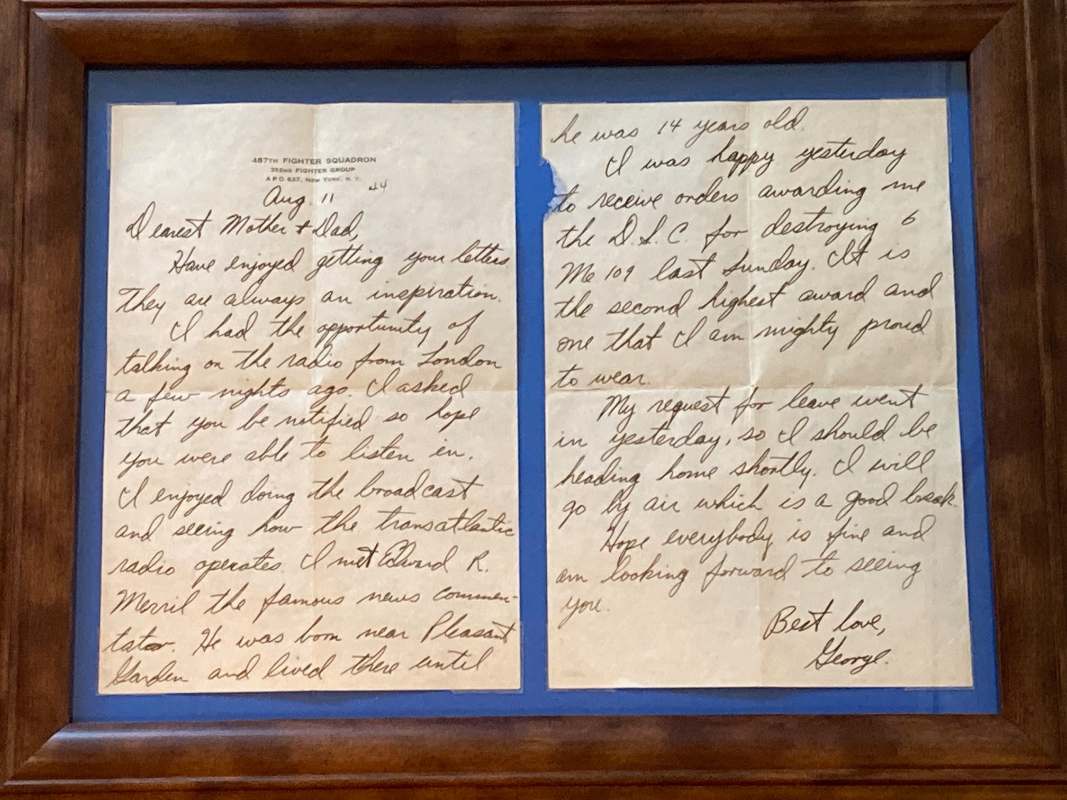 487TH FIGHTER SQUADRON
352ND FIGHTER GROUP
A.P.O. 637, NEW YORK, N. Y.
Aug. 11 -44
Dearest Mother + Dad,
Have enjoyed getting your letters.
They are always an inspiration.
I had the opportunity of
talking on the radio from London
a few nights ago. I asked
that you be notified so hope
you were able to listen in.
I enjoyed doing the broadcast
and seeing how the transatlantic
radio operates. I met Edward R.
Merril the famous news commen-
tator. He was born near Pleasant
Garden and lived there until
he was 14 years old.
I was happy yesterday
to receive orders awarding me
the D.S.C. for destroying 6
Me 109 last Sunday. It is
the second highest award and
one that I am mighty proud
to wear.
My request for leave went
in yesterday, so I should be
heading home shortly. I will
go by air which is a good break.
Hope everybody is fine and
am looking forward to seeing
you.
Best love,
George.